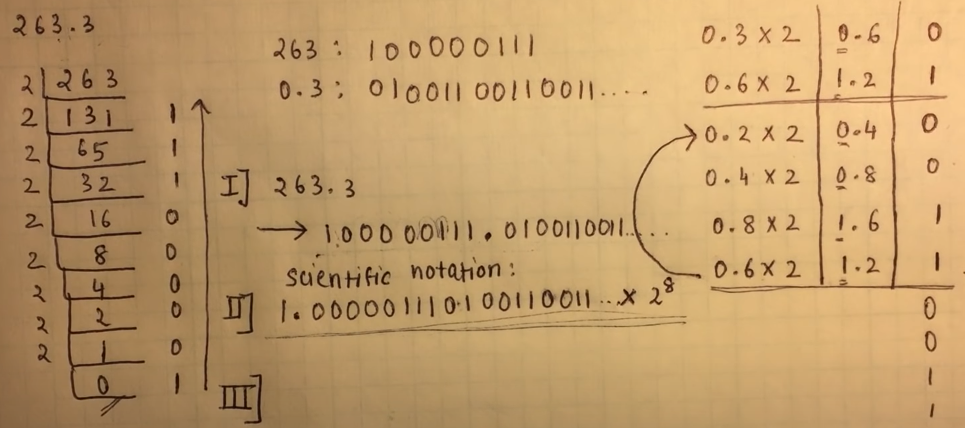 263.3
2 263
2 131 1
2 65 1
2 32 1
2 16 0
2 8 0
2 4 0
2 2 0
2 1 0
0 1
263 : 100000111
0.3 ; 01001100110011....
I] 263.3
→ 100000111.0100110011.....
scientific notation :
II] 1.000001110100110011... × 2⁸
III]
0.3 × 2 0.6 0
0.6 × 2 1.2 1
0.2 × 2 0.4 0
0.4 × 2 0.8 0
0.8 × 2 1.6 1
0.6 × 2 1.2 1
0
0
1
1